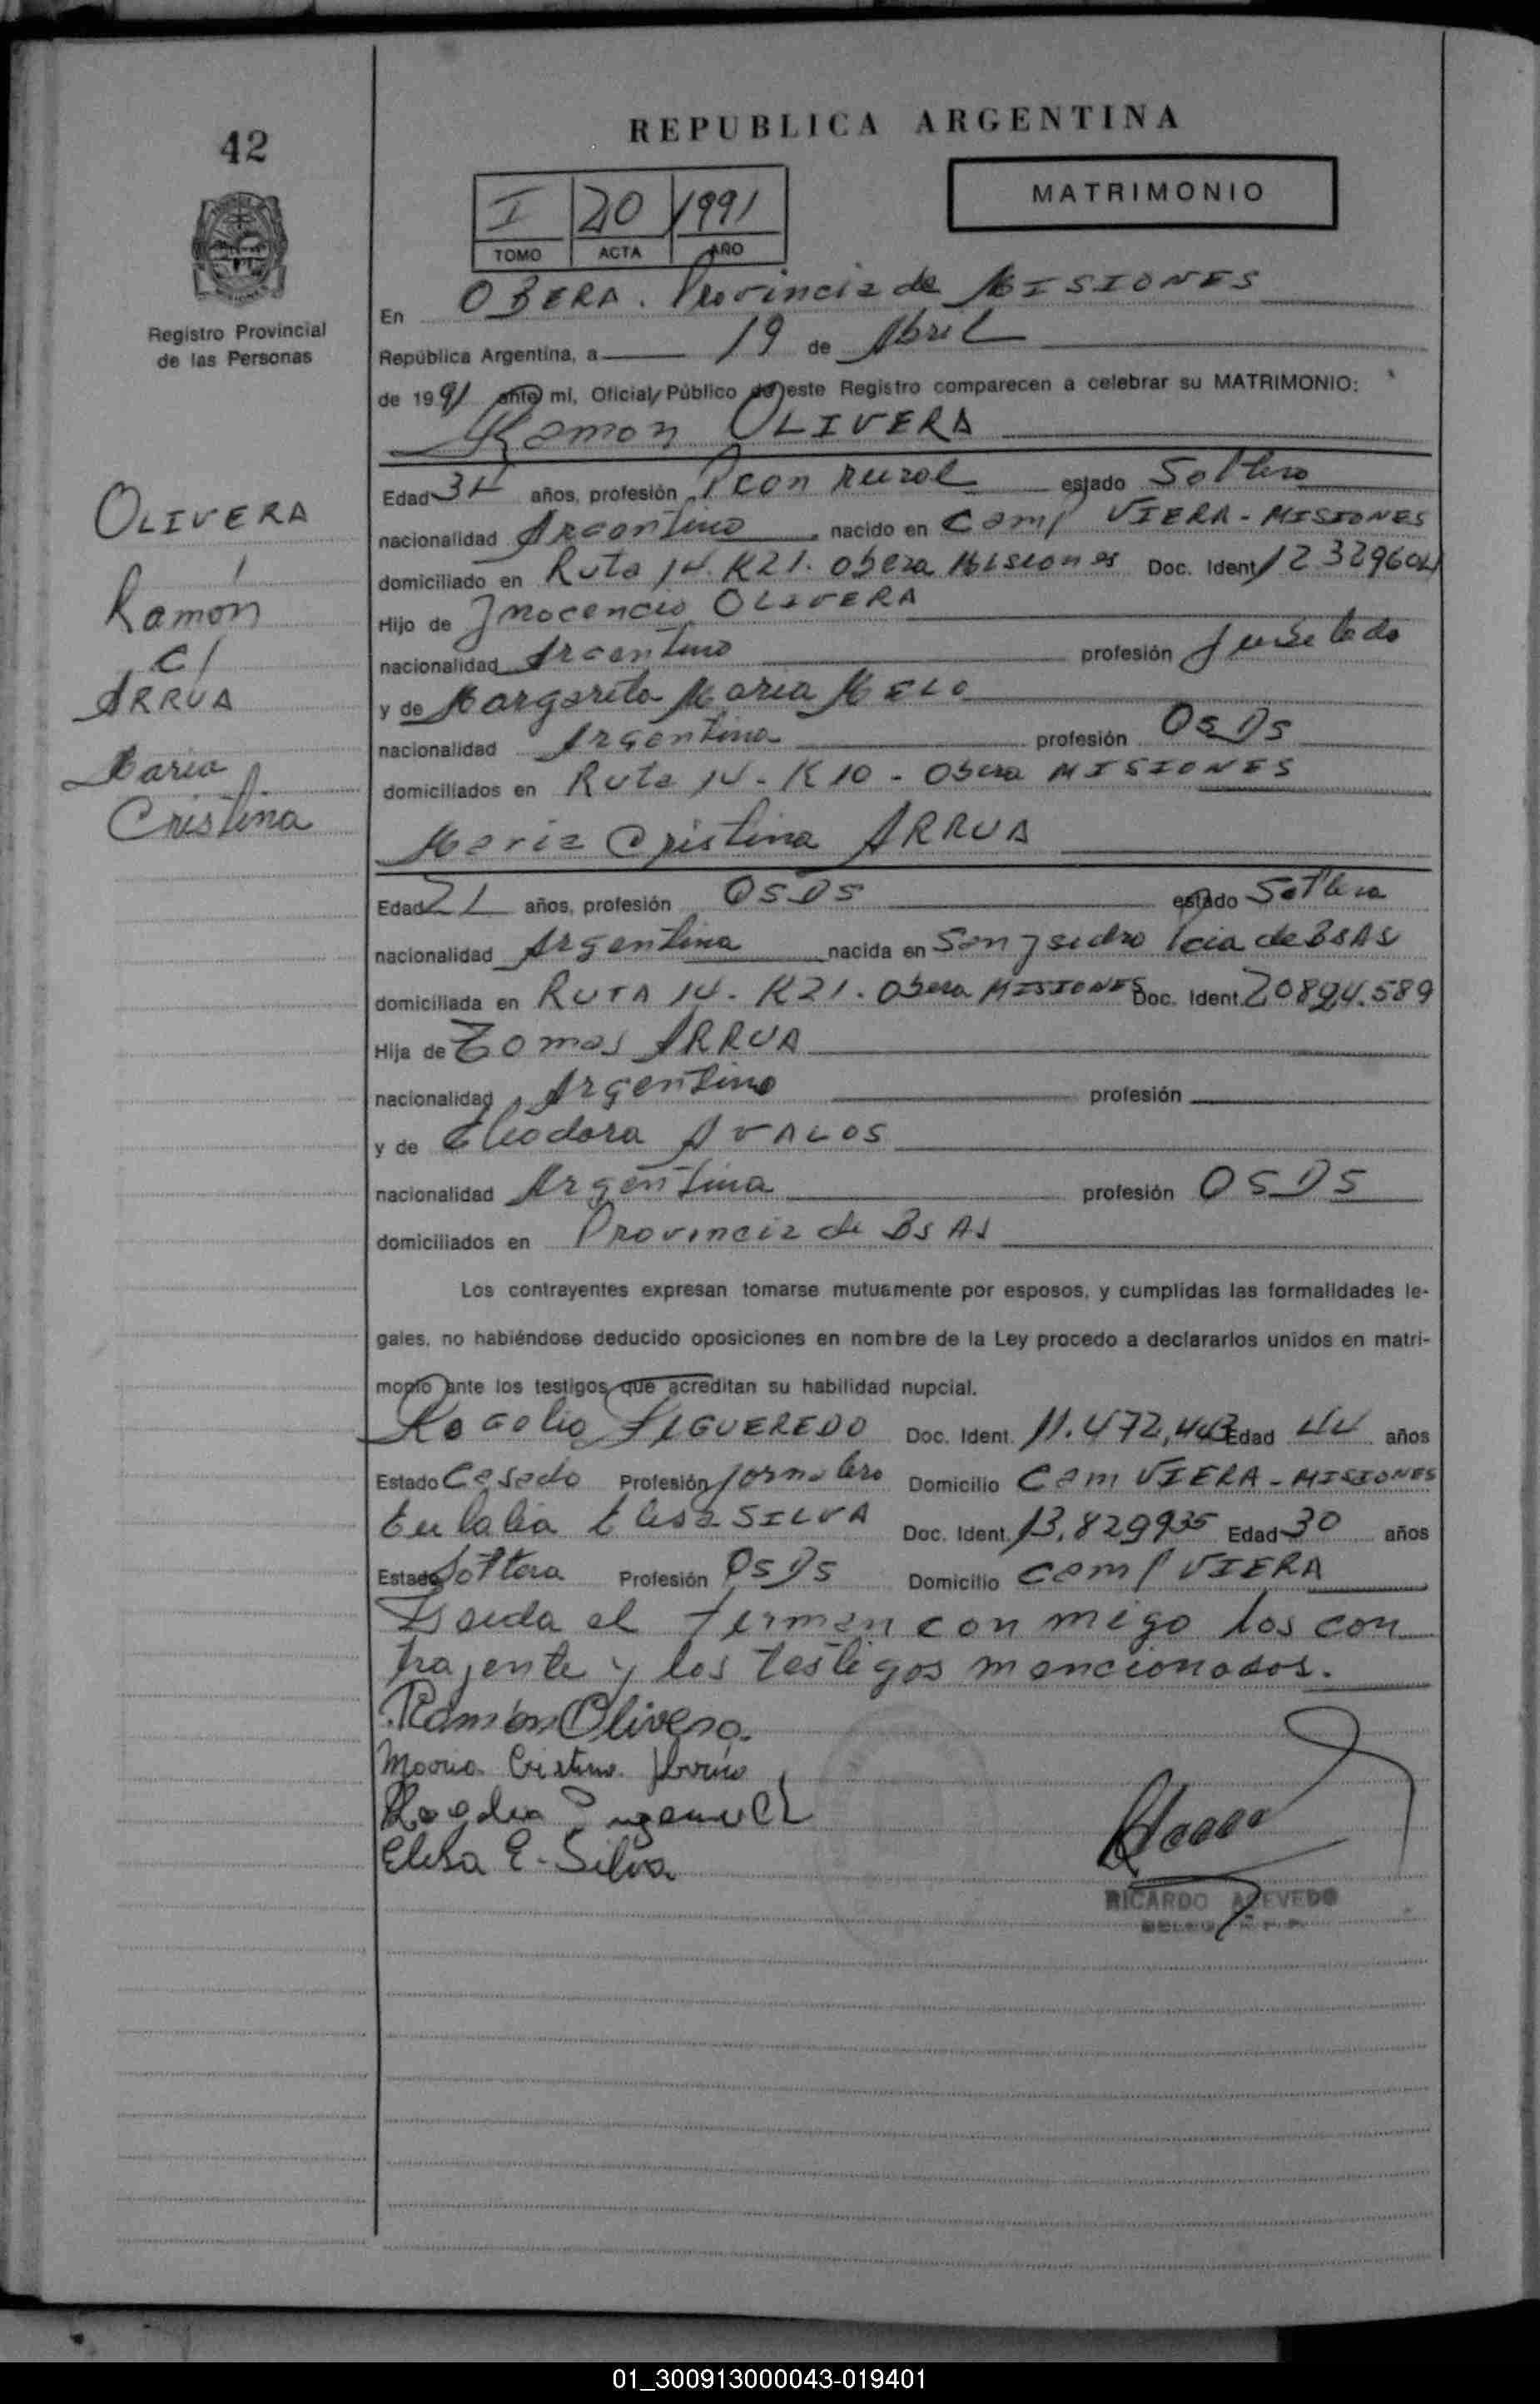 42
REPUBLICA ARGENTINA
MATRIMONIO
I 20 1991
TOMO ACTA AÑO
Registro Provincial
de las Personas
En OBERA. Provincia de MISIONES
República Argentina, a 19 de Abril
de 1991 ante mi, Oficial Público de este Registro comparecen a celebrar su MATRIMONIO:
Ramon OLIVERA
OLIVERA
Ramon
c/
ARRUA
Maria
Cristina
Edad años, profesión Peon Rural estado Soltero
nacionalidad Argentino nacido en Camp VIERA - MISIONES
domiciliado en Ruta 14. K21. Obera Misiones Doc. Ident. 12329604
Hijo de Inocencio OLIVERA
nacionalidad Argentino profesión Jubilado
y de Margarita Maria MELO
nacionalidad Argentina profesión OSDS
domiciliados en Ruta 14 - K10 - Obera MISIONES
Maria Cristina ARRUA
Edad 21 años, profesión OSDS estado Soltera
nacionalidad Argentina nacida en San Isidro Pcia de BsAs
domiciliada en RUTA 14 - K21. Obera MISIONES Doc. Ident. 20894.589
Hija de Tomas ARRUA
nacionalidad Argentino profesión
y de Eleodora AVALOS
nacionalidad Argentina profesión OSDS
domiciliados en Provincia de Bs As
Los contrayentes expresan tomarse mutuamente por esposos, y cumplidas las formalidades le-
gales, no habiéndose deducido oposiciones en nombre de la Ley procedo a declararlos unidos en matri-
monio ante los testigos que acreditan su habilidad nupcial.
Rogelio FIGUEREDO Doc. Ident. 11.472,443 Edad 44 años
Estado Casado Profesión Jornalero Domicilio Cam VIERA - MISIONES
Eulalia Elisa SILVA Doc. Ident. 13.829935 Edad 30 años
Estado Soltera Profesión OSDS Domicilio Camp VIERA
Leida el firman con migo los con
trajente y los testigos mencionados.
Ramón Olivera.
Maria Cristina Arrua
Elisa E. Silva
RICARDO ACEVEDO
01_300913000043-019401